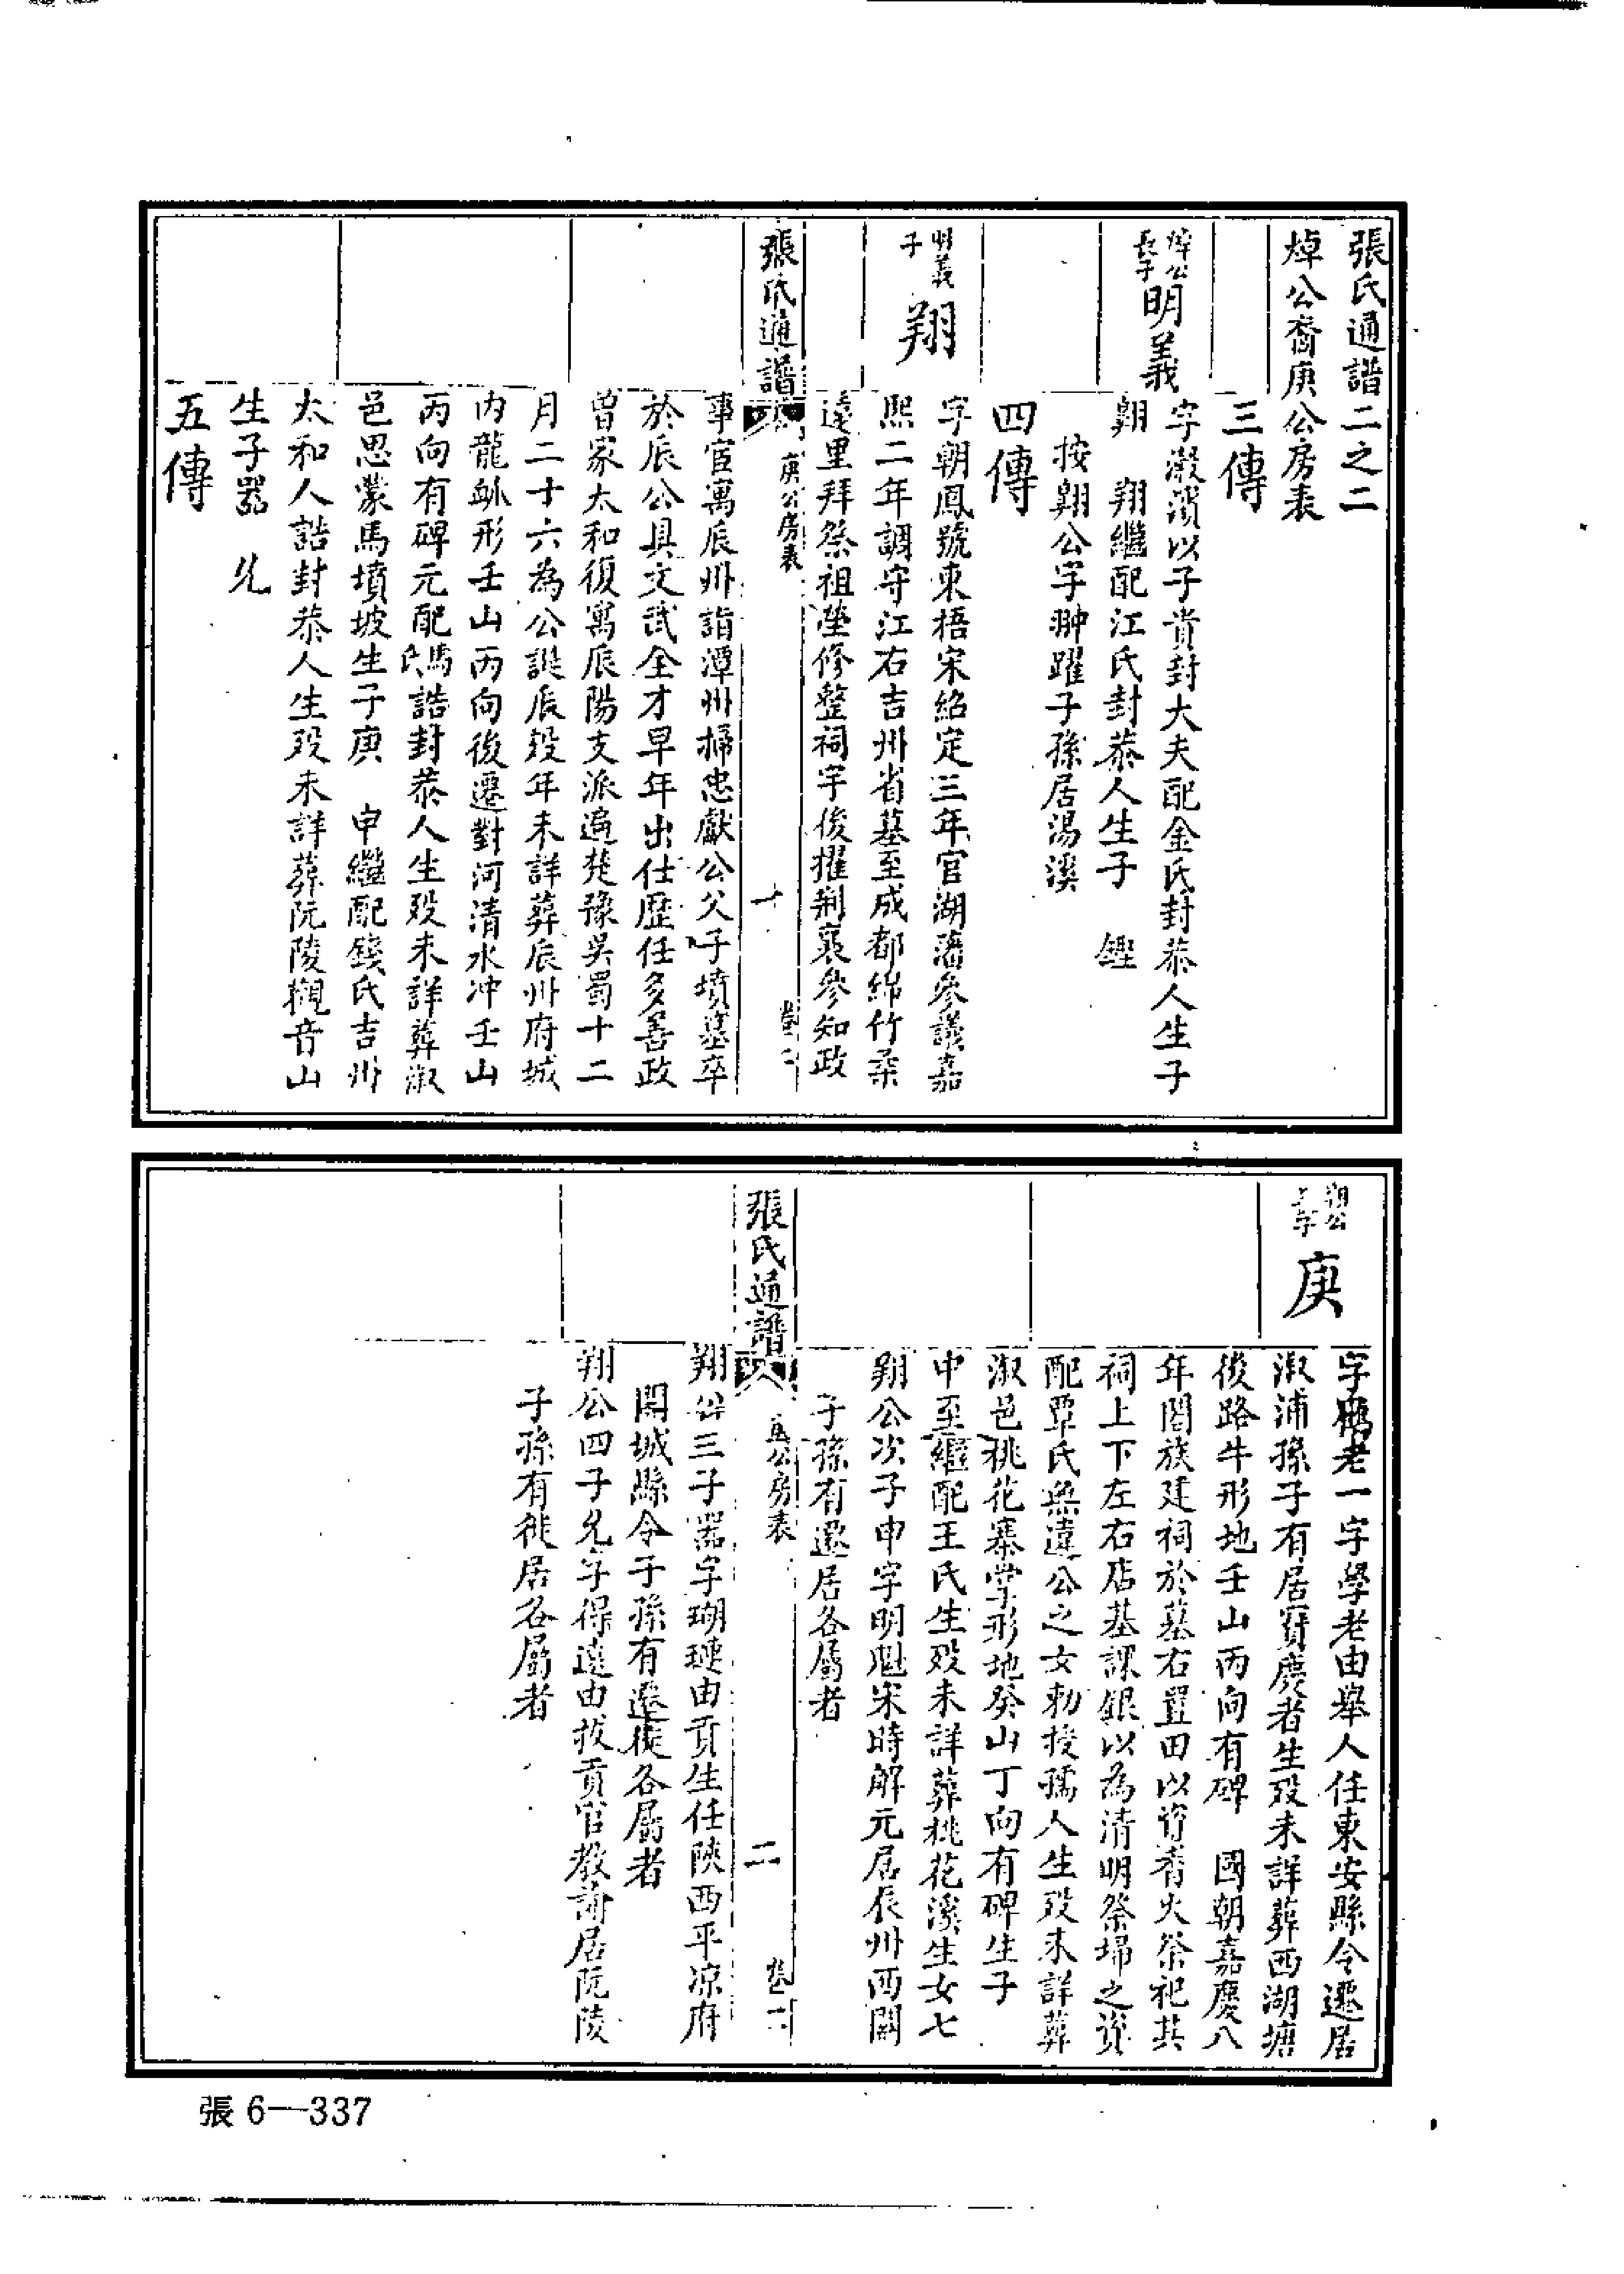 張氏通譜二之二
焯公裔庚公房表
三傳
焯公
長子
明義
字淑濱以子貴封大夫配金氏封恭人生子
翱　翔繼配江氏封恭人生子　鏗
按翱公字翀躍子孫居湯溪
四傳
明義
子
翔
字朝鳳號東梧宋紹定三年官湖藩參議嘉
熙二年調守江右吉州省墓至成都綿竹柔
遠里拜祭祖塋修整祠宇後擢荊襄參知政
張氏通譜
庚公房表
一
卷二
事宦寓辰州詣潭州掃忠獻公父子墳墓卒
於辰公具文武全才早年出仕歷任多善政
曾家太和復寓辰陽支派遍楚豫吳蜀十二
月二十六為公誕辰歿年未詳葬辰州府城
內龍䘑形壬山丙向後遷對河清水冲壬山
丙向有碑元配馮氏誥封恭人生歿未詳葬漵
邑思蒙馬墳坡生子庚　申繼配錢氏吉州
太和人誥封恭人生歿未詳葬沅陵觀音山
生子器　允
五傳
翔公
長子
庚
字鶴老一字學老由舉人任東安縣令遷居
漵浦孫子有居寶慶者生歿未詳葬西湖塘
後路牛形地壬山丙向有碑　國朝嘉慶八
年闔族建祠於墓右置田以資香火祭祀其
祠上下左右店基課銀以為清明祭掃之資
配覃氏無違公之女勅授孺人生歿未詳葬
漵邑桃花寨掌形地癸山丁向有碑生子
中至繼配王氏生歿未詳葬桃花溪生女七
翔公次子申字明魁宋時解元居辰州西關
子孫有遷居各屬者
張氏通譜
庚公房表
二
卷二
翔公三子器字瑚璉由貢生任陝西平凉府
開城縣令子孫有遷徙各屬者
翔公四子允字得遠由拔貢官教諭居沅陵
子孫有徙居各屬者
張6—337